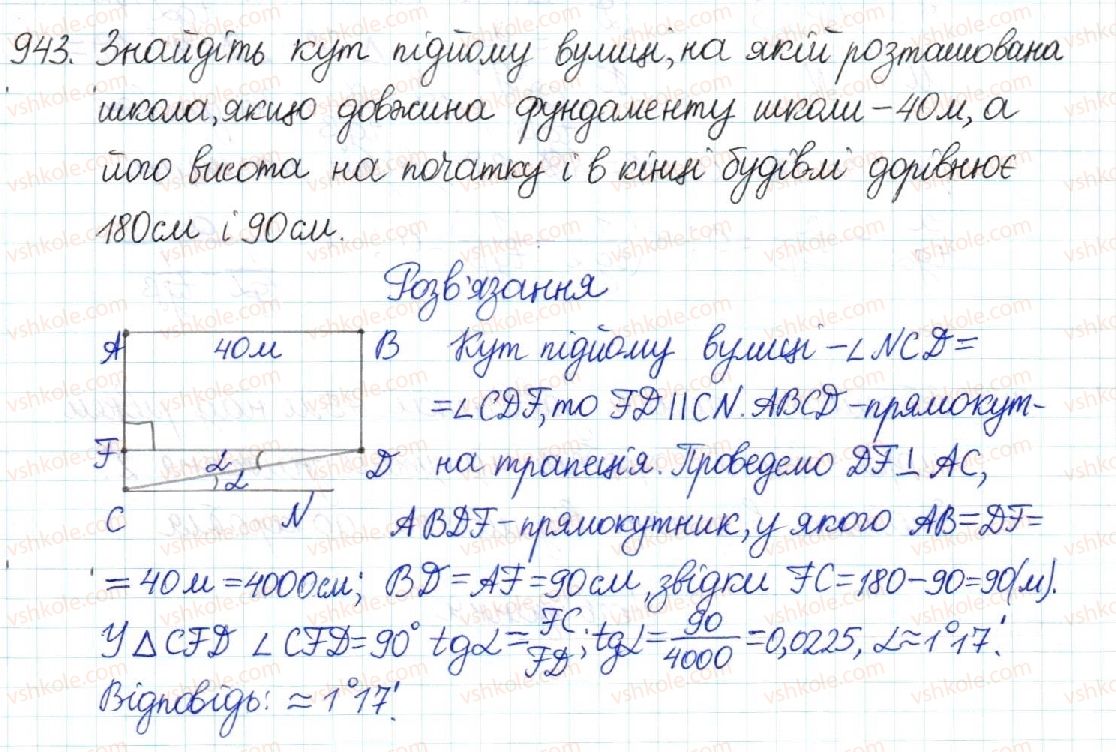 943. Знайдіть кут підйому вулиці, на якій розташована
школа, якщо довжина фундаменту школи – 40м, а
його висота на початку і в кінці будівлі дорівнює
180см і 90см.
Розв'язання
A 40м B Кут підйому вулиці – ∠NCD =
= ∠CDF, то FD || CN. ABCD – прямокут-
F α D на трапеція. Проведемо DF ⊥ AC,
α
C N ABDF – прямокутник, у якого AB = DF =
= 40м = 4000см; BD = AF = 90см, звідки FC = 180 – 90 = 90(м).
У △CFD ∠CFD = 90° tgα = FC/FD; tgα = 90/4000 = 0,0225, α ≈ 1°17'.
Відповідь: ≈ 1°17'.
vshkole.com